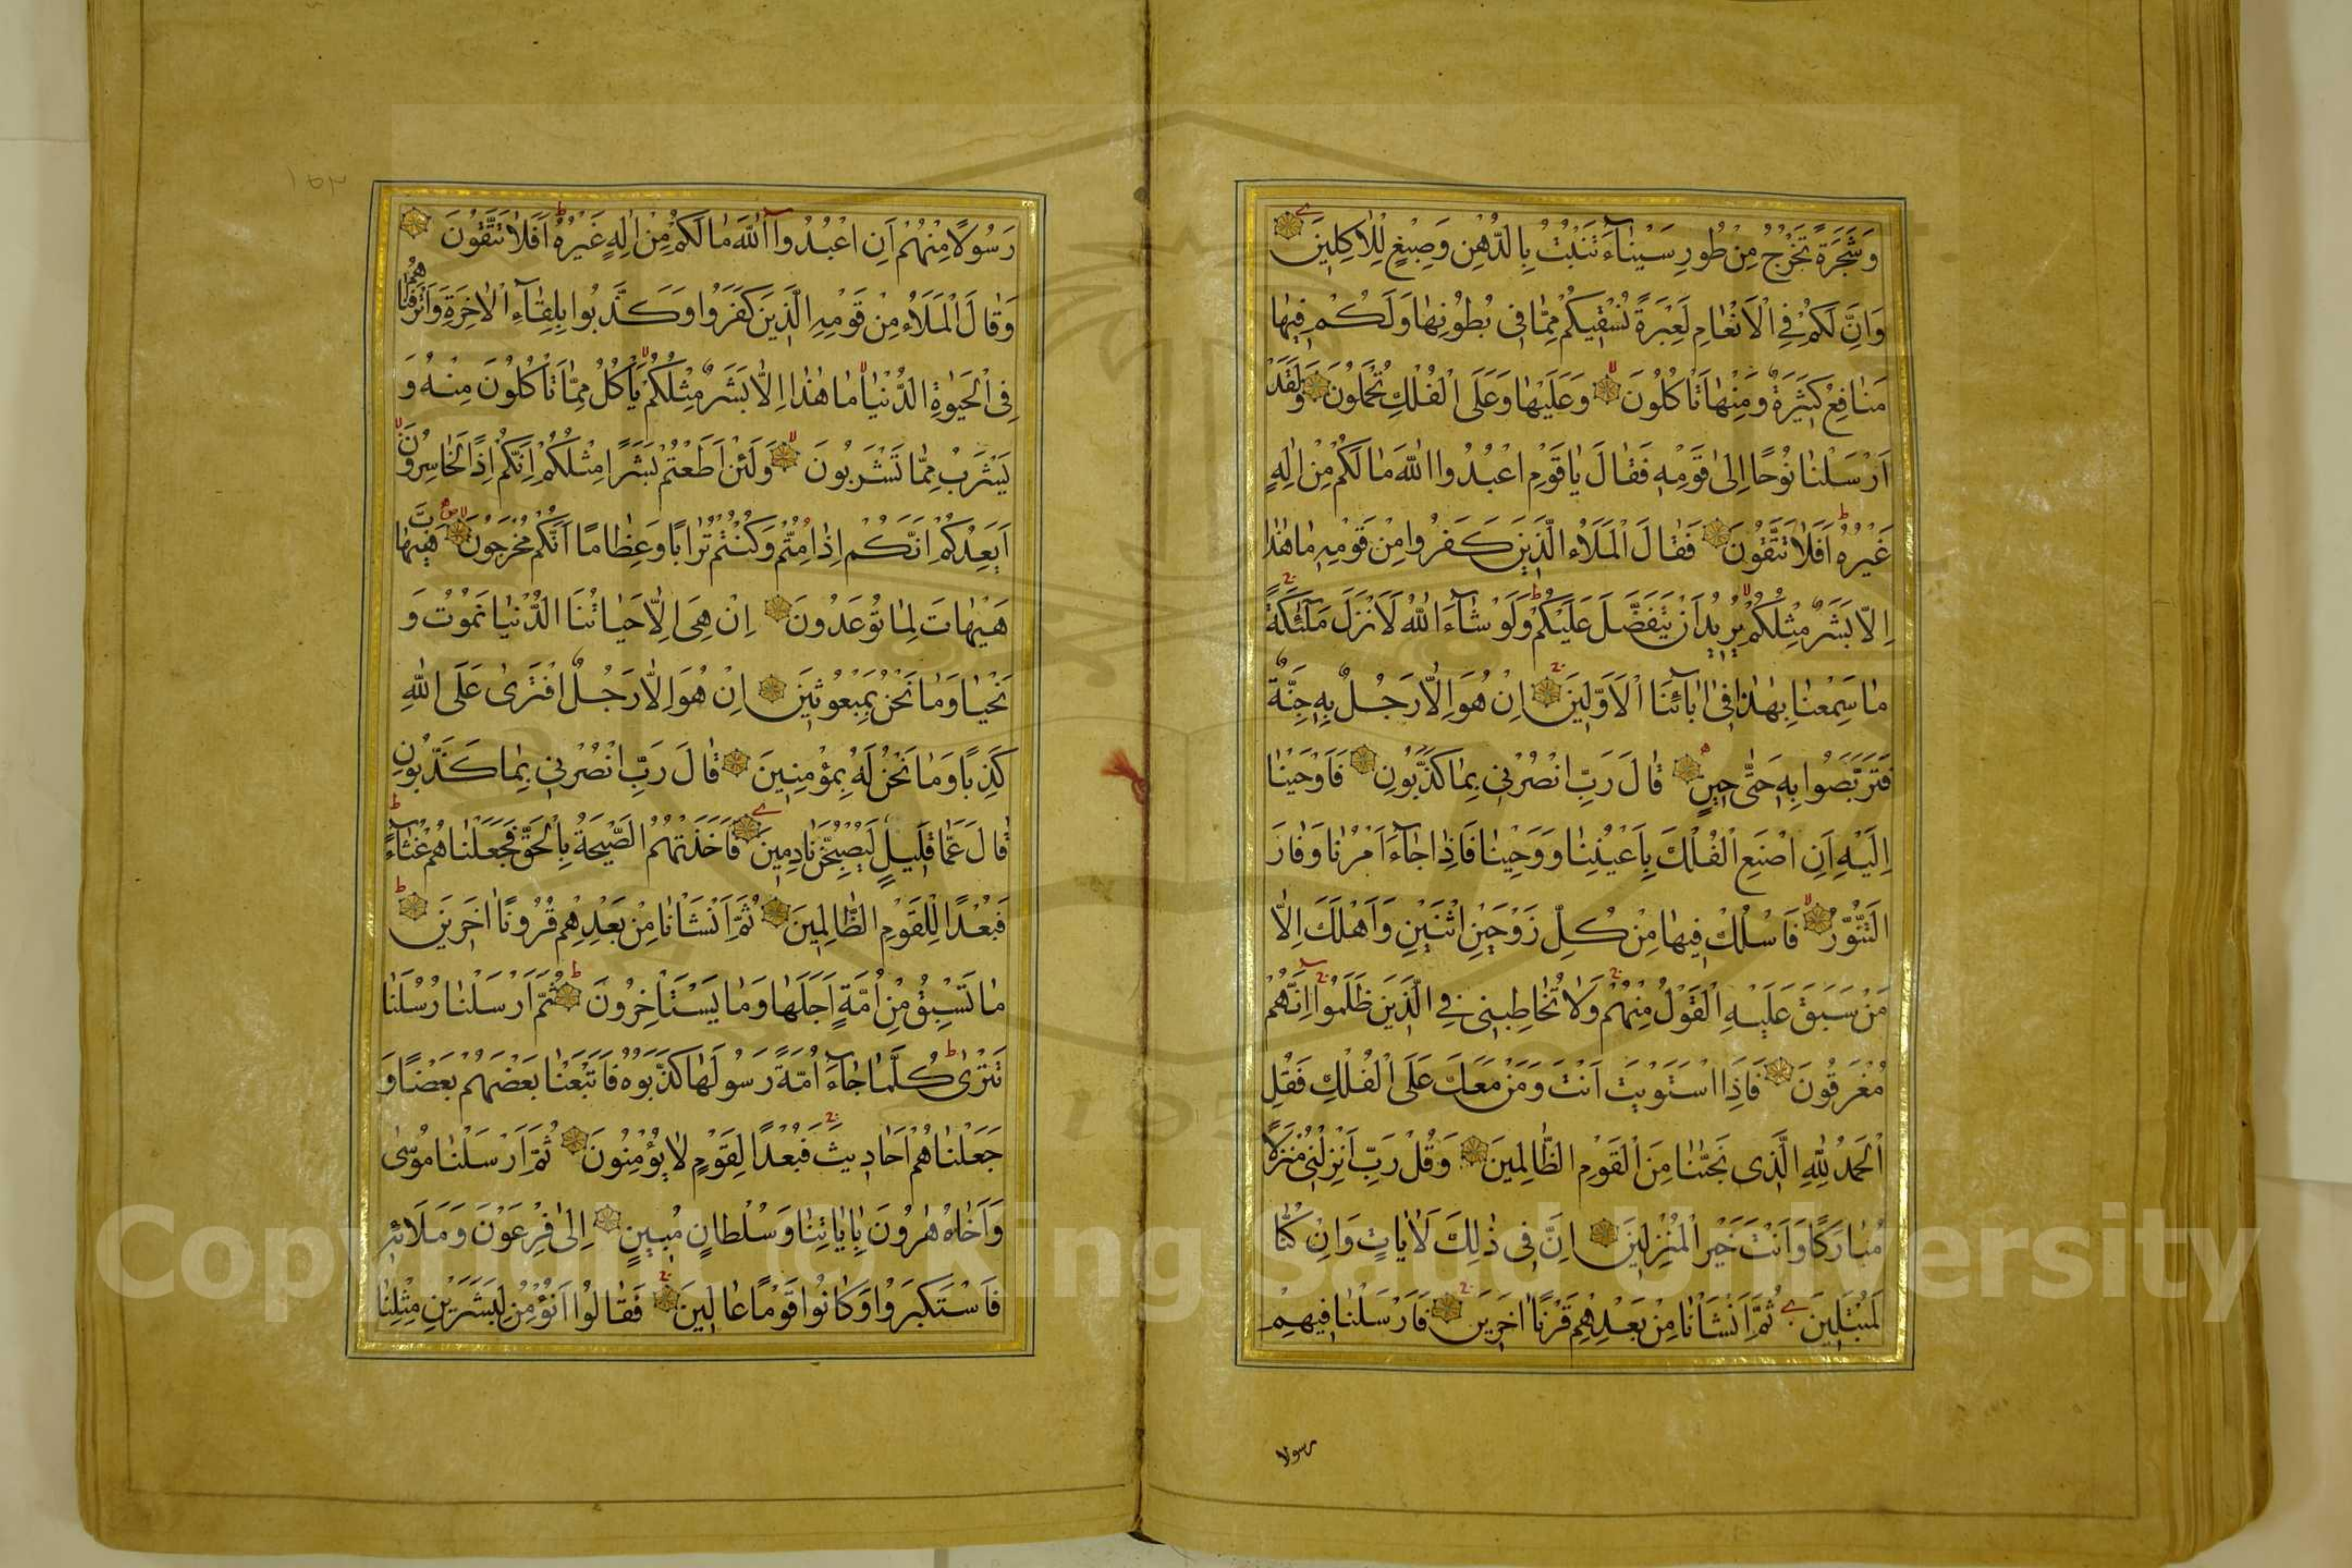 وَشَجَرَةً تَخْرُجُ مِنْ طُورِ سَيْنَآءَ تَنْبُتُ بِالدُّهْنِ وَصِبْغٍ لِلْاٰكِلِينَ
وَاِنَّ لَكُمْ فِي الْاَنْعَامِ لَعِبْرَةً نُسْقِيكُمْ مِمَّا فِى بُطُونِهَا وَلَكُمْ فِيهَا
مَنَافِعُ كَثِيرَةٌ وَمِنْهَا تَاْكُلُونَ وَعَلَيْهَا وَعَلَى الْفُلْكِ تُحْمَلُونَ وَلَقَدْ
اَرْسَلْنَا نُوحًا اِلٰى قَوْمِهِ فَقَالَ يَا قَوْمِ اعْبُدُوا اللّٰهَ مَا لَكُمْ مِنْ اِلٰهٍ
غَيْرُهُ اَفَلَا تَتَّقُونَ فَقَالَ الْمَلَاُ الَّذِينَ كَفَرُوا مِنْ قَوْمِهِ مَا هٰذَا
اِلَّا بَشَرٌ مِثْلُكُمْ يُرِيدُ اَنْ يَتَفَضَّلَ عَلَيْكُمْ وَلَوْ شَآءَ اللّٰهُ لَاَنْزَلَ مَلٰٓئِكَةً
مَا سَمِعْنَا بِهٰذَا فِى اٰبَآئِنَا الْاَوَّلِينَ اِنْ هُوَ اِلَّا رَجُلٌ بِهِ جِنَّةٌ
فَتَرَبَّصُوا بِهِ حَتّٰى حِينٍ قَالَ رَبِّ انْصُرْنِى بِمَا كَذَّبُونِ فَاَوْحَيْنَا
اِلَيْهِ اَنِ اصْنَعِ الْفُلْكَ بِاَعْيُنِنَا وَوَحْيِنَا فَاِذَا جَآءَ اَمْرُنَا وَفَارَ
التَّنُّورُ فَاسْلُكْ فِيهَا مِنْ كُلٍّ زَوْجَيْنِ اثْنَيْنِ وَاَهْلَكَ اِلَّا
مَنْ سَبَقَ عَلَيْهِ الْقَوْلُ مِنْهُمْ وَلَا تُخَاطِبْنِى فِي الَّذِينَ ظَلَمُوا اِنَّهُمْ
مُغْرَقُونَ فَاِذَا اسْتَوَيْتَ اَنْتَ وَمَنْ مَعَكَ عَلَى الْفُلْكِ فَقُلِ
الْحَمْدُ لِلّٰهِ الَّذِى نَجّٰنَا مِنَ الْقَوْمِ الظَّالِمِينَ وَقُلْ رَبِّ اَنْزِلْنِى مُنْزَلًا
مُبَارَكًا وَاَنْتَ خَيْرُ الْمُنْزِلِينَ اِنَّ فِى ذٰلِكَ لَاٰيَاتٍ وَاِنْ كُنَّا
لَمُبْتَلِينَ ثُمَّ اَنْشَاْنَا مِنْ بَعْدِهِمْ قَرْنًا اٰخَرِينَ فَاَرْسَلْنَا فِيهِمْ
رسولا
١٥٣
رَسُولًا مِنْهُمْ اَنِ اعْبُدُوا اللّٰهَ مَا لَكُمْ مِنْ اِلٰهٍ غَيْرُهُ اَفَلَا تَتَّقُونَ
وَقَالَ الْمَلَاُ مِنْ قَوْمِهِ الَّذِينَ كَفَرُوا وَكَذَّبُوا بِلِقَآءِ الْاٰخِرَةِ وَاَتْرَفْنَاهُمْ
فِى الْحَيٰوةِ الدُّنْيَا مَا هٰذَا اِلَّا بَشَرٌ مِثْلُكُمْ يَاْكُلُ مِمَّا تَاْكُلُونَ مِنْهُ وَ
يَشْرَبُ مِمَّا تَشْرَبُونَ وَلَئِنْ اَطَعْتُمْ بَشَرًا مِثْلَكُمْ اِنَّكُمْ اِذًا لَخَاسِرُونَ
اَيَعِدُكُمْ اَنَّكُمْ اِذَا مِتُّمْ وَكُنْتُمْ تُرَابًا وَعِظَامًا اَنَّكُمْ مُخْرَجُونَ هَيْهَاتَ
هَيْهَاتَ لِمَا تُوعَدُونَ اِنْ هِيَ اِلَّا حَيَاتُنَا الدُّنْيَا نَمُوتُ وَ
نَحْيَا وَمَا نَحْنُ بِمَبْعُوثِينَ اِنْ هُوَ اِلَّا رَجُلٌ افْتَرٰى عَلَى اللّٰهِ
كَذِبًا وَمَا نَحْنُ لَهُ بِمُؤْمِنِينَ قَالَ رَبِّ انْصُرْنِى بِمَا كَذَّبُونِ
قَالَ عَمَّا قَلِيلٍ لَيُصْبِحُنَّ نَادِمِينَ فَاَخَذَتْهُمُ الصَّيْحَةُ بِالْحَقِّ فَجَعَلْنَاهُمْ غُثَآءً
فَبُعْدًا لِلْقَوْمِ الظَّالِمِينَ ثُمَّ اَنْشَاْنَا مِنْ بَعْدِهِمْ قُرُونًا اٰخَرِينَ
مَا تَسْبِقُ مِنْ اُمَّةٍ اَجَلَهَا وَمَا يَسْتَاْخِرُونَ ثُمَّ اَرْسَلْنَا رُسُلَنَا
تَتْرٰى كُلَّمَا جَآءَ اُمَّةً رَسُولُهَا كَذَّبُوهُ فَاَتْبَعْنَا بَعْضَهُمْ بَعْضًا وَ
جَعَلْنَاهُمْ اَحَادِيثَ فَبُعْدًا لِقَوْمٍ لَا يُؤْمِنُونَ ثُمَّ اَرْسَلْنَا مُوسٰى
وَاَخَاهُ هٰرُونَ بِاٰيَاتِنَا وَسُلْطَانٍ مُبِينٍ اِلٰى فِرْعَوْنَ وَمَلَائِهِ
فَاسْتَكْبَرُوا وَكَانُوا قَوْمًا عَالِينَ فَقَالُوا اَنُؤْمِنُ لِبَشَرَيْنِ مِثْلِنَا
Copyright © King Saud University
195